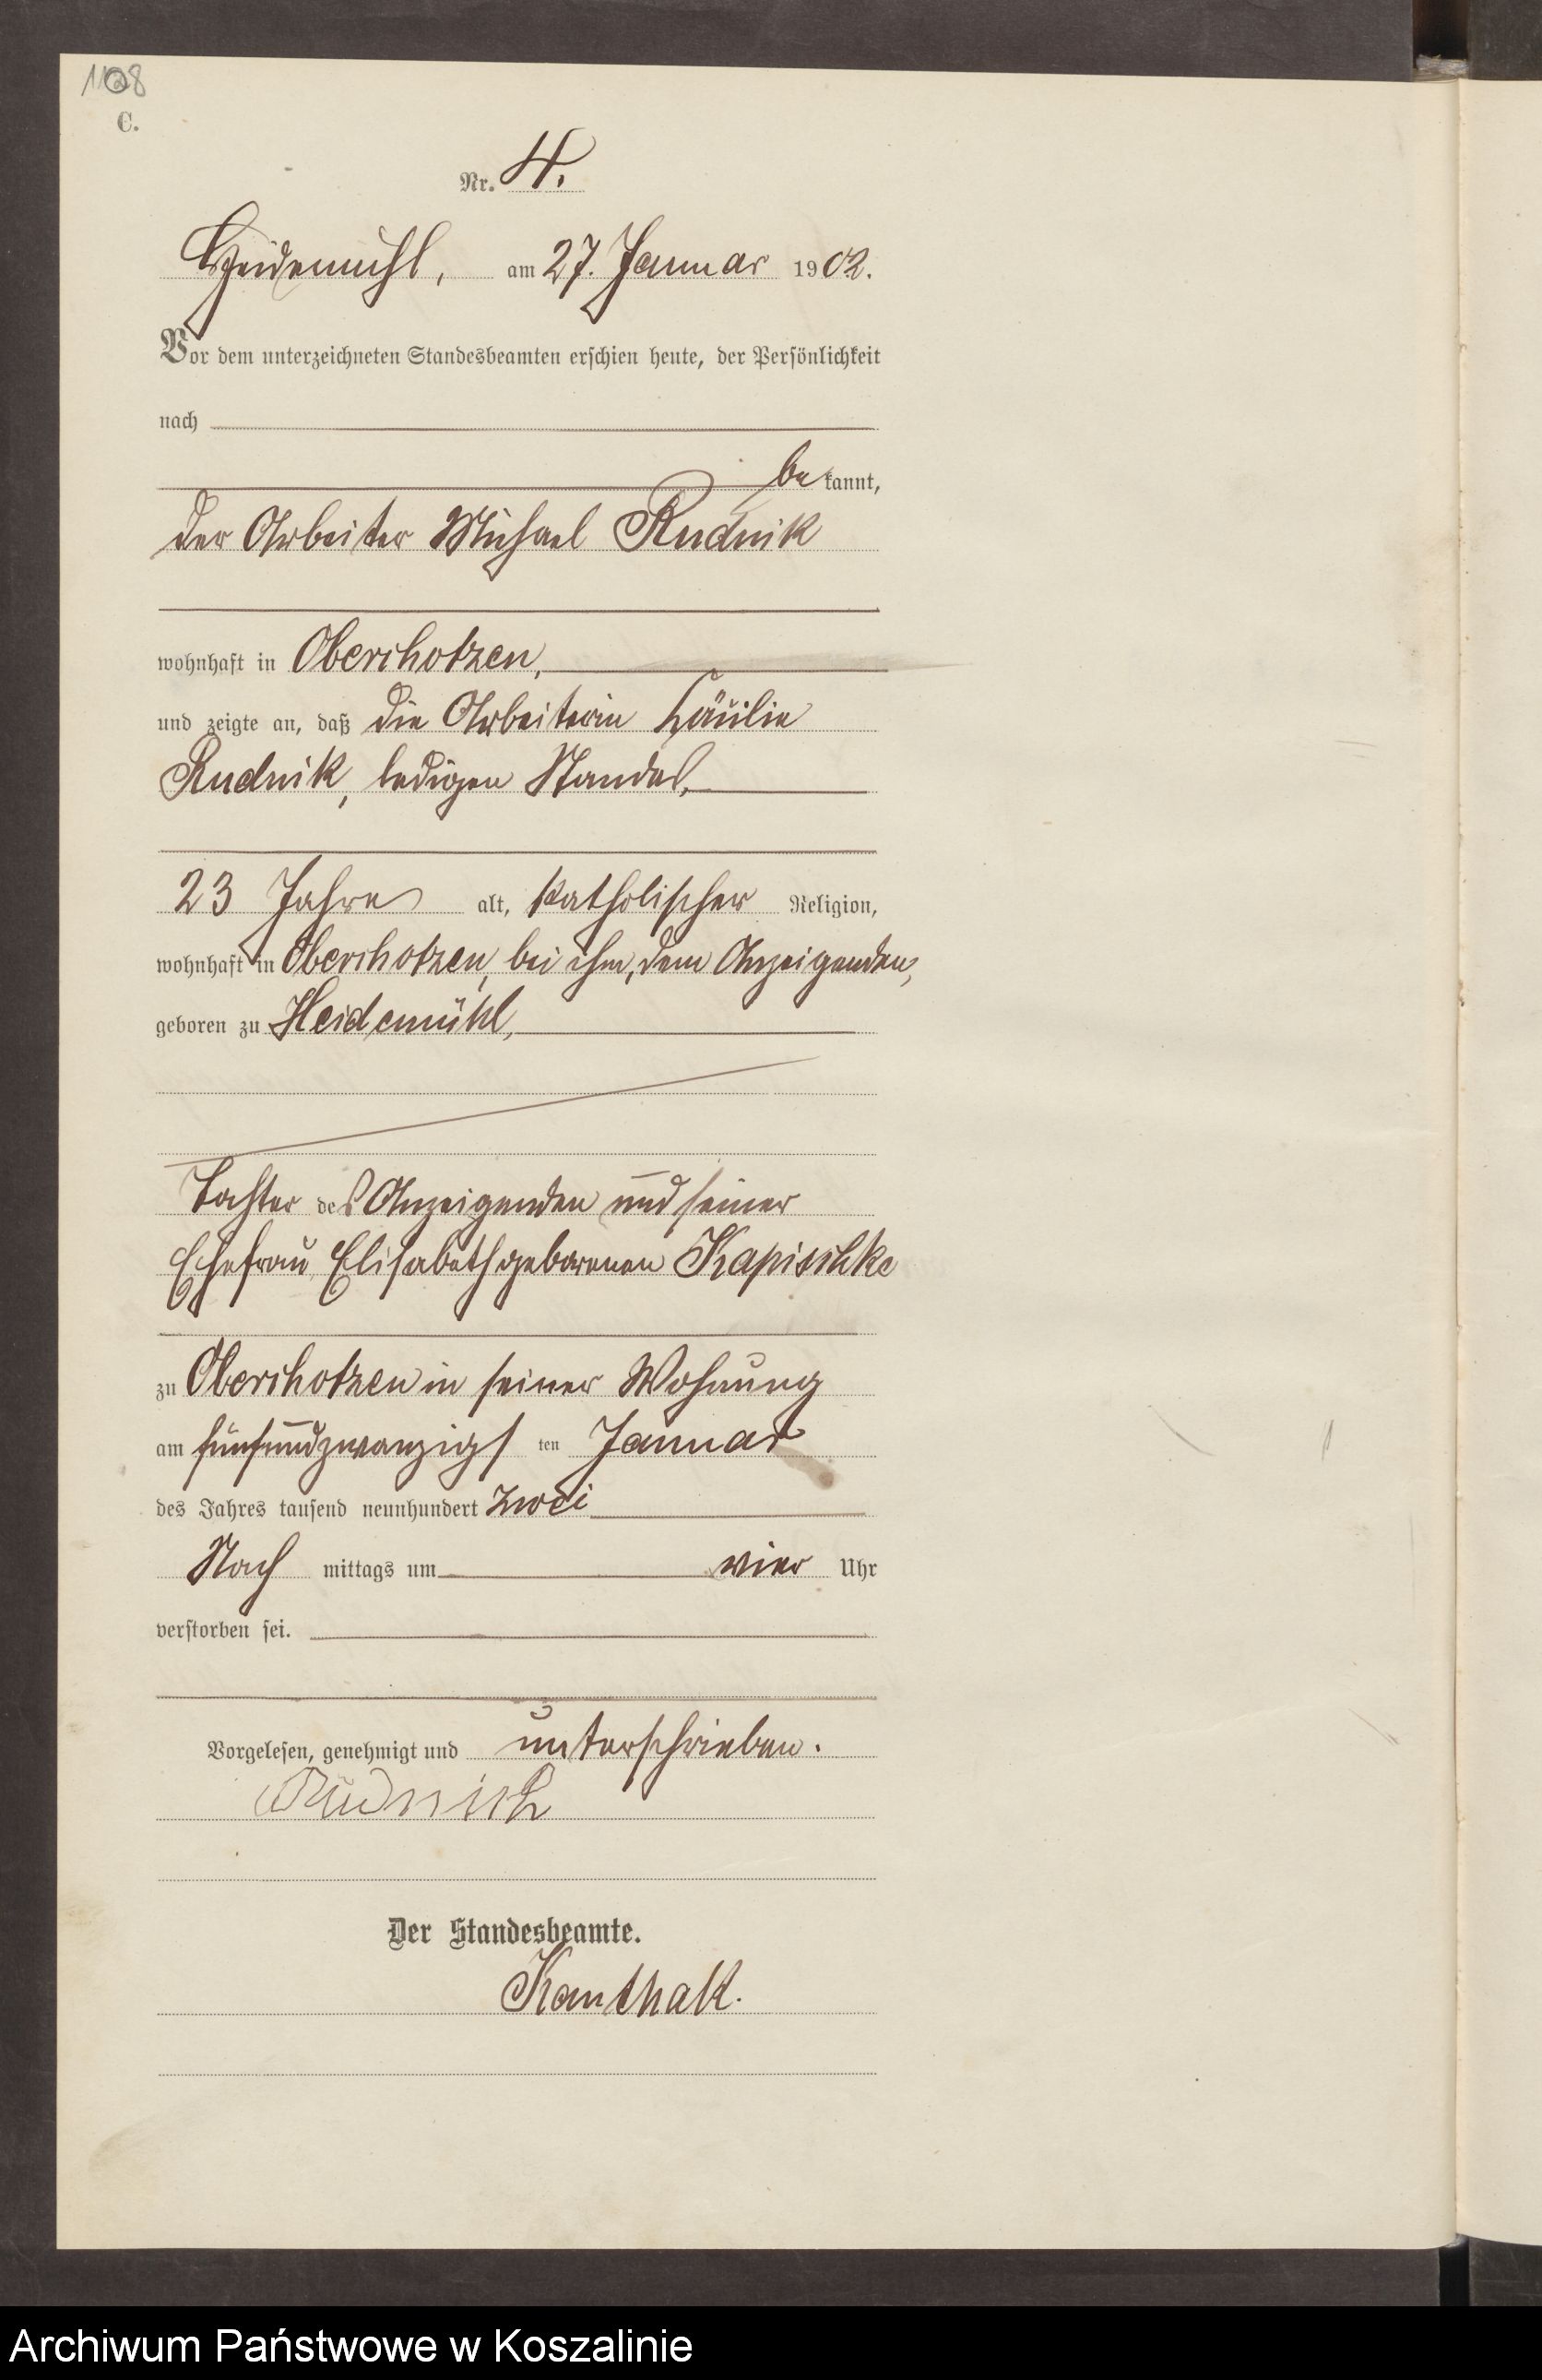 C.
Nr. 4.
Heidemühl, am 27. Januar 1902.
Vor dem unterzeichneten Standesbeamten erschien heute, der Persönlichkeit
nach
be kannt,
der Arbeiter Michael Rudnik
wohnhaft in Oberchotzen,
und zeigte an, daß die Arbeiterin
Rudnik, ledigen Standes,
23 Jahre alt, katholischer Religion,
wohnhaft in Oberchotzen, bei ihm, dem Anzeigenden,
geboren zu Heidemühl,
Tochter des Anzeigenden und seiner
Ehefrau Elisabeth geborenen Kapischke
zu Oberchotzen in seiner Wohnung
am fünfundzwanzigs ten Januar
des Jahres tausend neunhundert zwei
Nach mittags um vier Uhr
verstorben sei.
Vorgelesen, genehmigt und unterschrieben.
Rudnick
Der Standesbeamte.
Kanthak.
Archiwum Państwowe w Koszalinie